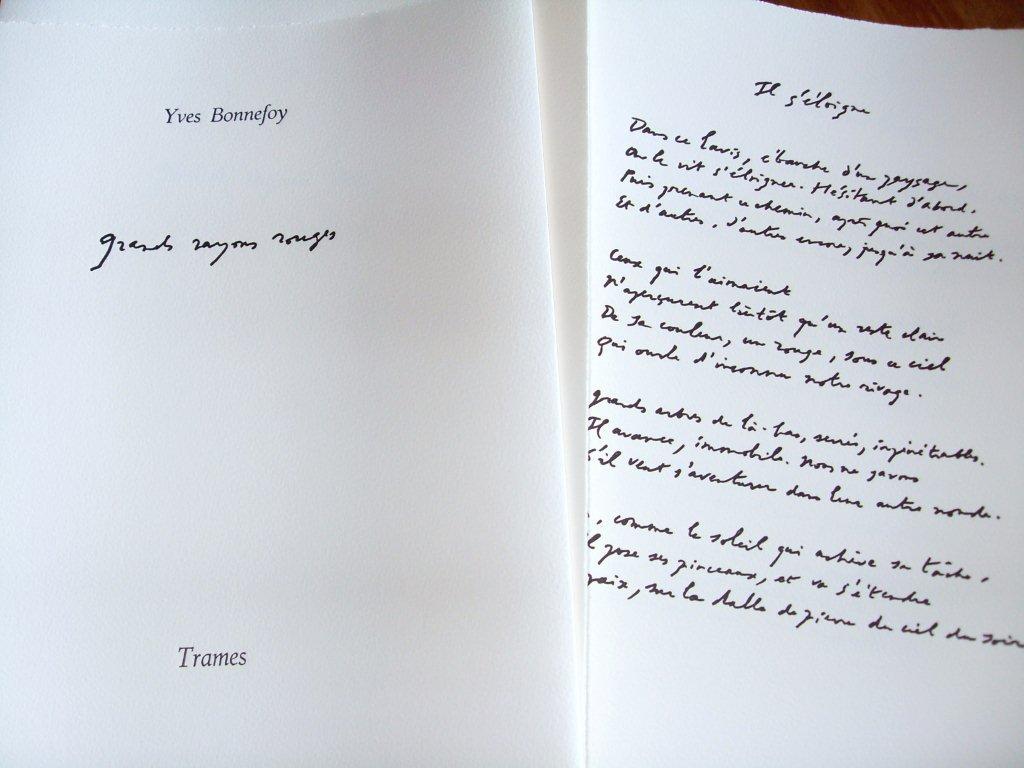 Yves Bonnefoy
grands rayons rouges
Trames
Il s'éloigne
Dans ce lavis, ébauche d'un paysage,
On le vit s'éloigner. Hésitant d'abord.
Puis prenant ce chemin, après quoi cet autre
Et d'autres, d'autres encore, jusqu'à sa nuit.
Ceux qui l'aimaient
N'aperçurent bientôt qu'un reste clair
De sa couleur, un rouge, sous ce ciel
Qui ourle d'inconnu notre rivage.
grands arbres de là-bas, serrés, impénétrables.
Il avance, immobile. Nous ne savons
S'il veut s'aventurer dans leur autre monde.
, comme le soleil qui achève sa tâche,
il pose ses pinceaux, et va s'étendre
paix, sur la dalle de pierre du ciel du soir